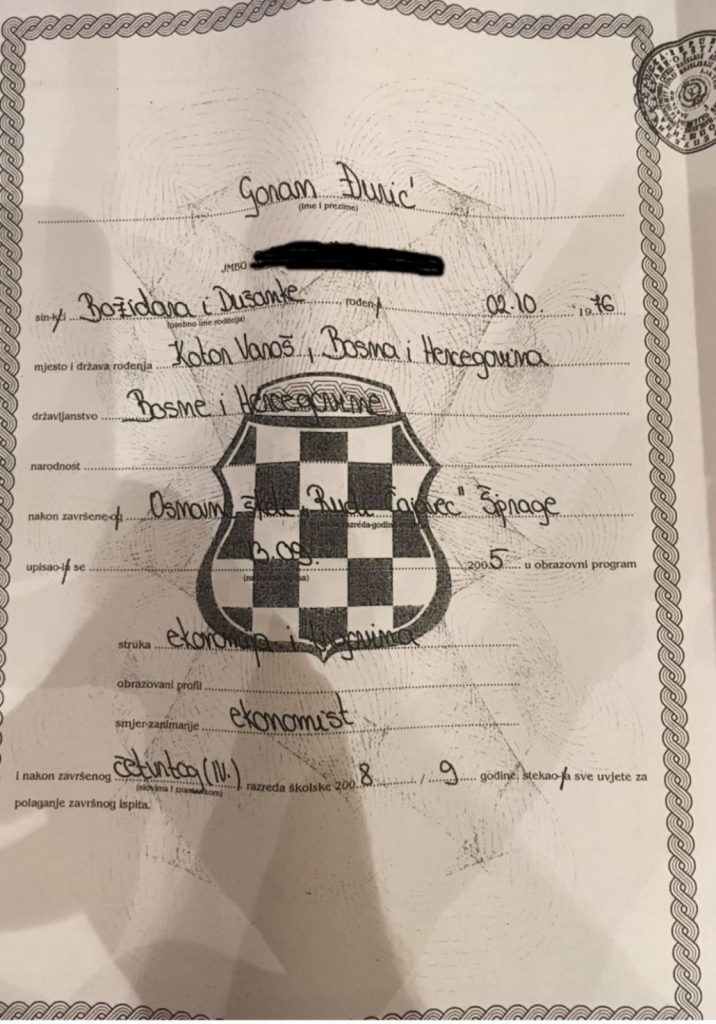 Goran Đurić
(ime i prezime)
JMBG
sin-kći Božidara i Dušanke rođen-a 02.10. 1976
(osobno ime roditelja)
mjesto i država rođenja Kotor Varoš, Bosna i Hercegovina
državljanstvo Bosne i Hercegovine
narodnost
nakon završene-og Osnovne škole „Rudi Čajavec" Šiprage
upisao-la se 13.09. 2005 u obrazovni program
(nadnevak upisa)
struka ekonomija i trgovina
obrazovani profil
smjer-zanimanje ekonomist
I nakon završenog četvrtog (IV.) razreda školske 2008/9 godine, stekao-la sve uvjete za
(slovima i znamenkom)
polaganje završnog ispita.